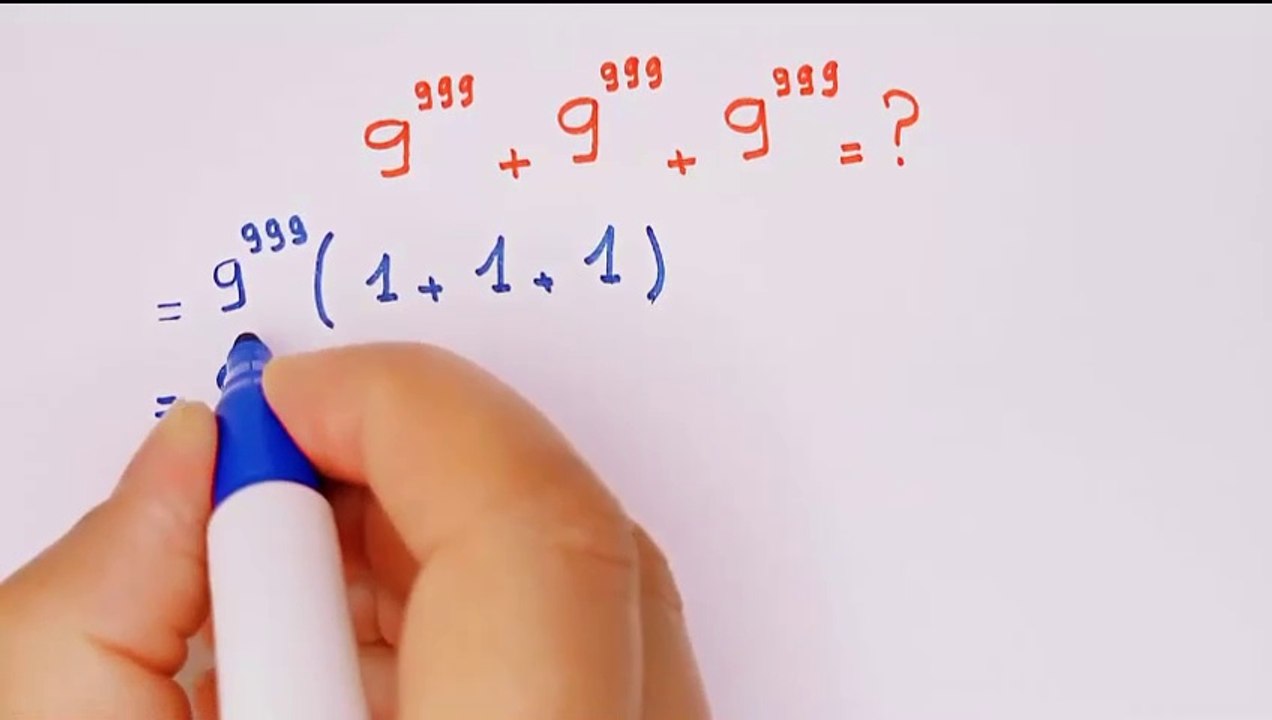 9^999 + 9^999 + 9^999 = ?
= 9^999 ( 1 + 1 + 1 )
=